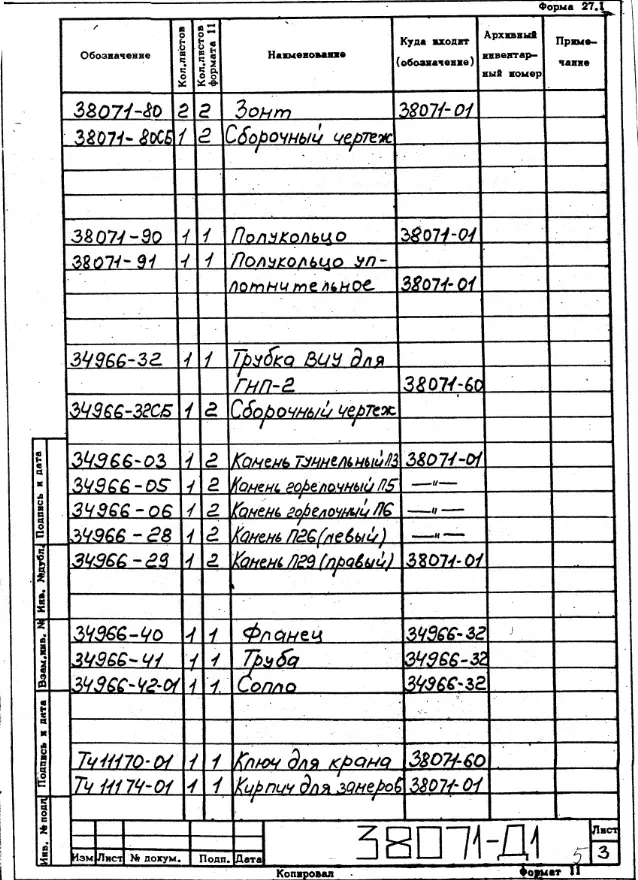 Форма 27.1
Обозначение Кол.листов Кол.листов формата 11 Наименование Куда входит (обозначение) Архивный инвентар-ный номер Приме-чание
38071-80 2 2 Зонт 38071-01
38071-80СБ 1 2 Сборочный чертеж
38071-90 1 1 Полукольцо 38071-01
38071-91 1 1 Полукольцо уп-
лотнительное 38071-01
34966-32 1 1 Трубка ВИУ для
ГНП-2 38071-60
34966-32СБ 1 2 Сборочный чертеж
34966-03 1 2 Камень туннельный П3 38071-01
34966-05 1 2 Камень горелочный П5 —"—
34966-06 1 2 Камень горелочный П6 —"—
34966-28 1 2 Камень П26 (левый) —"—
34966-29 1 2 Камень П29 (правый) 38071-01
34966-40 1 1 Фланец 34966-32
34966-41 1 1 Труба 34966-32
34966-42-01 1 1. Сопло 34966-32
Тч 11170-01 1 1 Ключ для крана 38071-60
Тч 11174-01 1 1 Кирпич для замеров 38071-01
Подпись и дата
Инв. №дубл.
Взам.инв. №
Подпись и дата
Инв. №подл.
38071-Д1
Лист
3
5
Изм Лист № докум. Подп. Дата
Копировал Формат 11